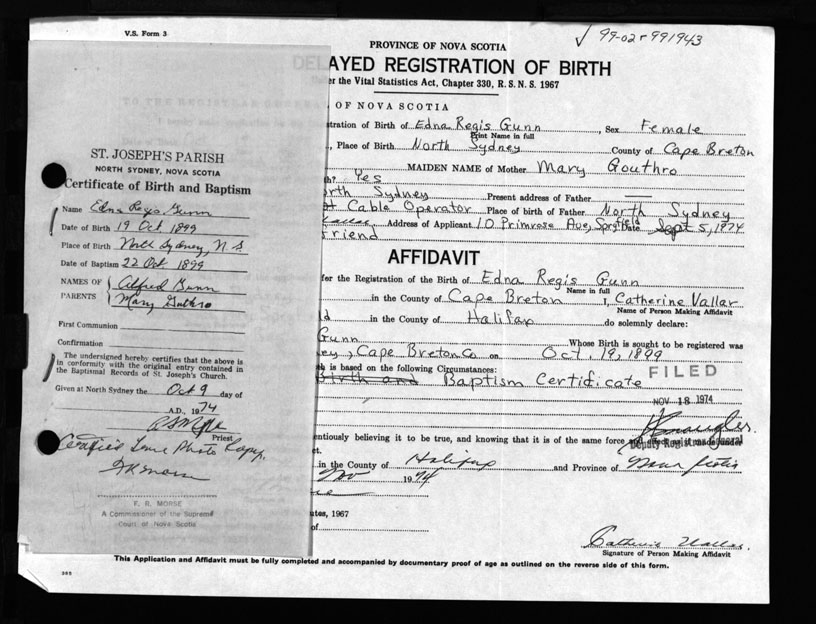 V.S. Form 3
✓ 99-02-991943
PROVINCE OF NOVA SCOTIA
DELAYED REGISTRATION OF BIRTH
er the Vital Statistics Act, Chapter 330, R.S.N.S. 1967
OF NOVA SCOTIA
stration of Birth of Edna Regis Gunn, Sex Female
Print Name in full
, Place of Birth North Sydney County of Cape Breton
MAIDEN NAME of Mother Mary Gouthro
h? Yes
rth Sydney Present address of Father —
Cable Operator Place of birth of Father North Sydney
Vallar Address of Applicant 10 Primrose Ave, Spryfield Date Sept 5, 1974
friend
AFFIDAVIT
for the Registration of the Birth of Edna Regis Gunn
Name in full
in the County of Cape Breton I, Catherine Vallar
Name of Person Making Affidavit
d in the County of Halifax do solemnly declare:
Gunn Whose Birth is sought to be registered was
ey, Cape Breton Co on Oct. 19, 1899
h is based on the following Circumstances:
Birth and Baptism Certificate
FILED
NOV 18 1974
Deputy Registrar General
entiously believing it to be true, and knowing that it is of the same force
et.
in the County of Halifax and Province of Nova Scotia
Nov 1974
utes, 1967
of
Catherine Vallar.
Signature of Person Making Affidavit
This Application and Affidavit must be fully completed and accompanied by documentary proof of age as outlined on the reverse side of this form.
ST. JOSEPH'S PARISH
NORTH SYDNEY, NOVA SCOTIA
Certificate of Birth and Baptism
Name Edna Regs Gunn
Date of Birth 19 Oct 1899
Place of Birth North Sydney, N S
Date of Baptism 22 Oct 1899
NAMES OF PARENTS Alfred Gunn
Mary Guthro
First Communion
Confirmation
The undersigned hereby certifies that the above is
in conformity with the original entry contained in
the Baptismal Records of St. Joseph's Church.
Given at North Sydney the Oct 9 day of
A.D., 1974
Priest
Certified True Photo Copy.
F R Morse
F. R. MORSE
A Commissioner of the Supreme
Court of Nova Scotia